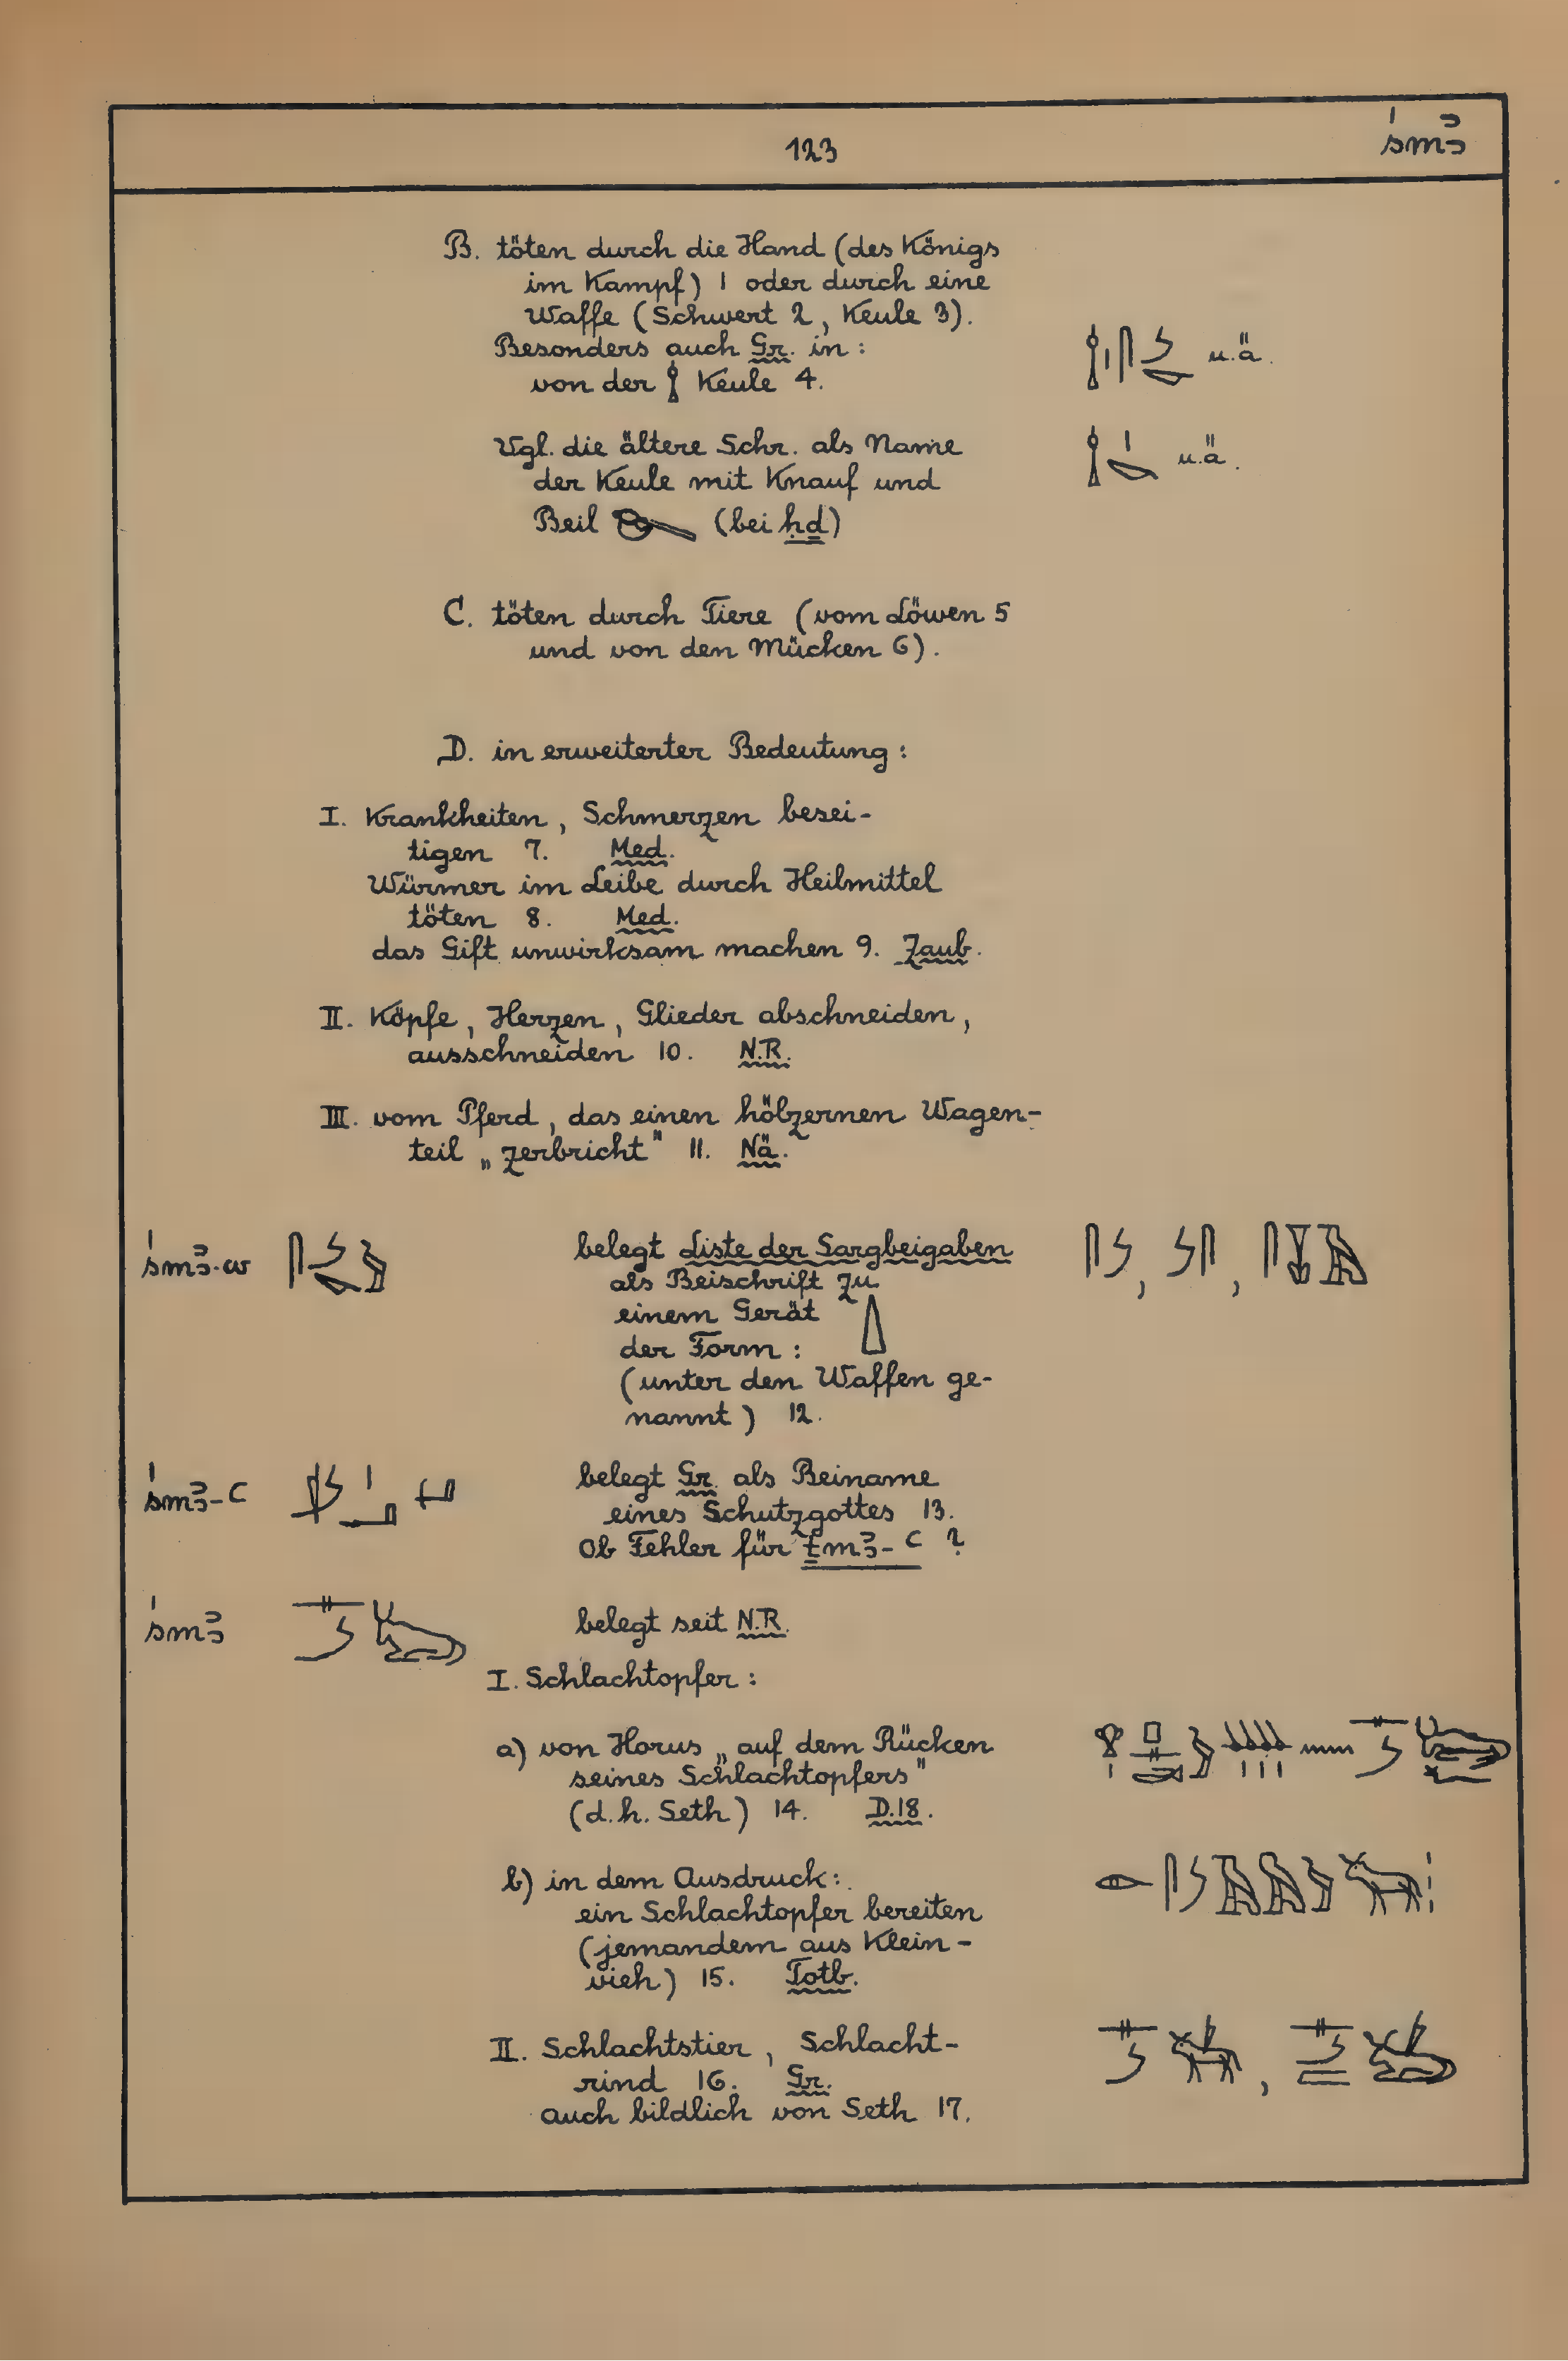 123
śmꜣ
B. töten durch die Hand (des Königs
im Kampf) 1 oder durch eine
Waffe (Schwert 2, Keule 3).
Besonders auch Gr. in: u.ä.
von der Keule 4.
Vgl. die ältere Schr. als Name u.ä.
der Keule mit Knauf und
Beil (bei ḥḏ)
C. töten durch Tiere (vom Löwen 5
und von den Mücken 6).
D. in erweiterter Bedeutung:
I. Krankheiten, Schmerzen besei-
tigen 7. Med.
Würmer im Leibe durch Heilmittel
töten 8. Med.
das Gift unwirksam machen 9. Zaub.
II. Köpfe, Herzen, Glieder abschneiden,
ausschneiden 10. N.R.
III. vom Pferd, das einen hölzernen Wagen-
teil „zerbricht" 11. Nä.
śmꜣ.w belegt Liste der Sargbeigaben
als Beischrift zu
einem Gerät
der Form:
(unter den Waffen ge-
nannt) 12.
śmꜣ-ꜥ belegt Gr. als Beiname
eines Schutzgottes 13.
Ob Fehler für ṯmꜣ-ꜥ ?
śmꜣ belegt seit N.R.
I. Schlachtopfer:
a) von Horus „auf dem Rücken
seines Schlachtopfers"
(d.h. Seth) 14. D.18.
b) in dem Ausdruck:
ein Schlachtopfer bereiten
(jemandem aus Klein-
vieh) 15. Totb.
II. Schlachtstier, Schlacht-
rind 16. Gr.
auch bildlich von Seth 17.